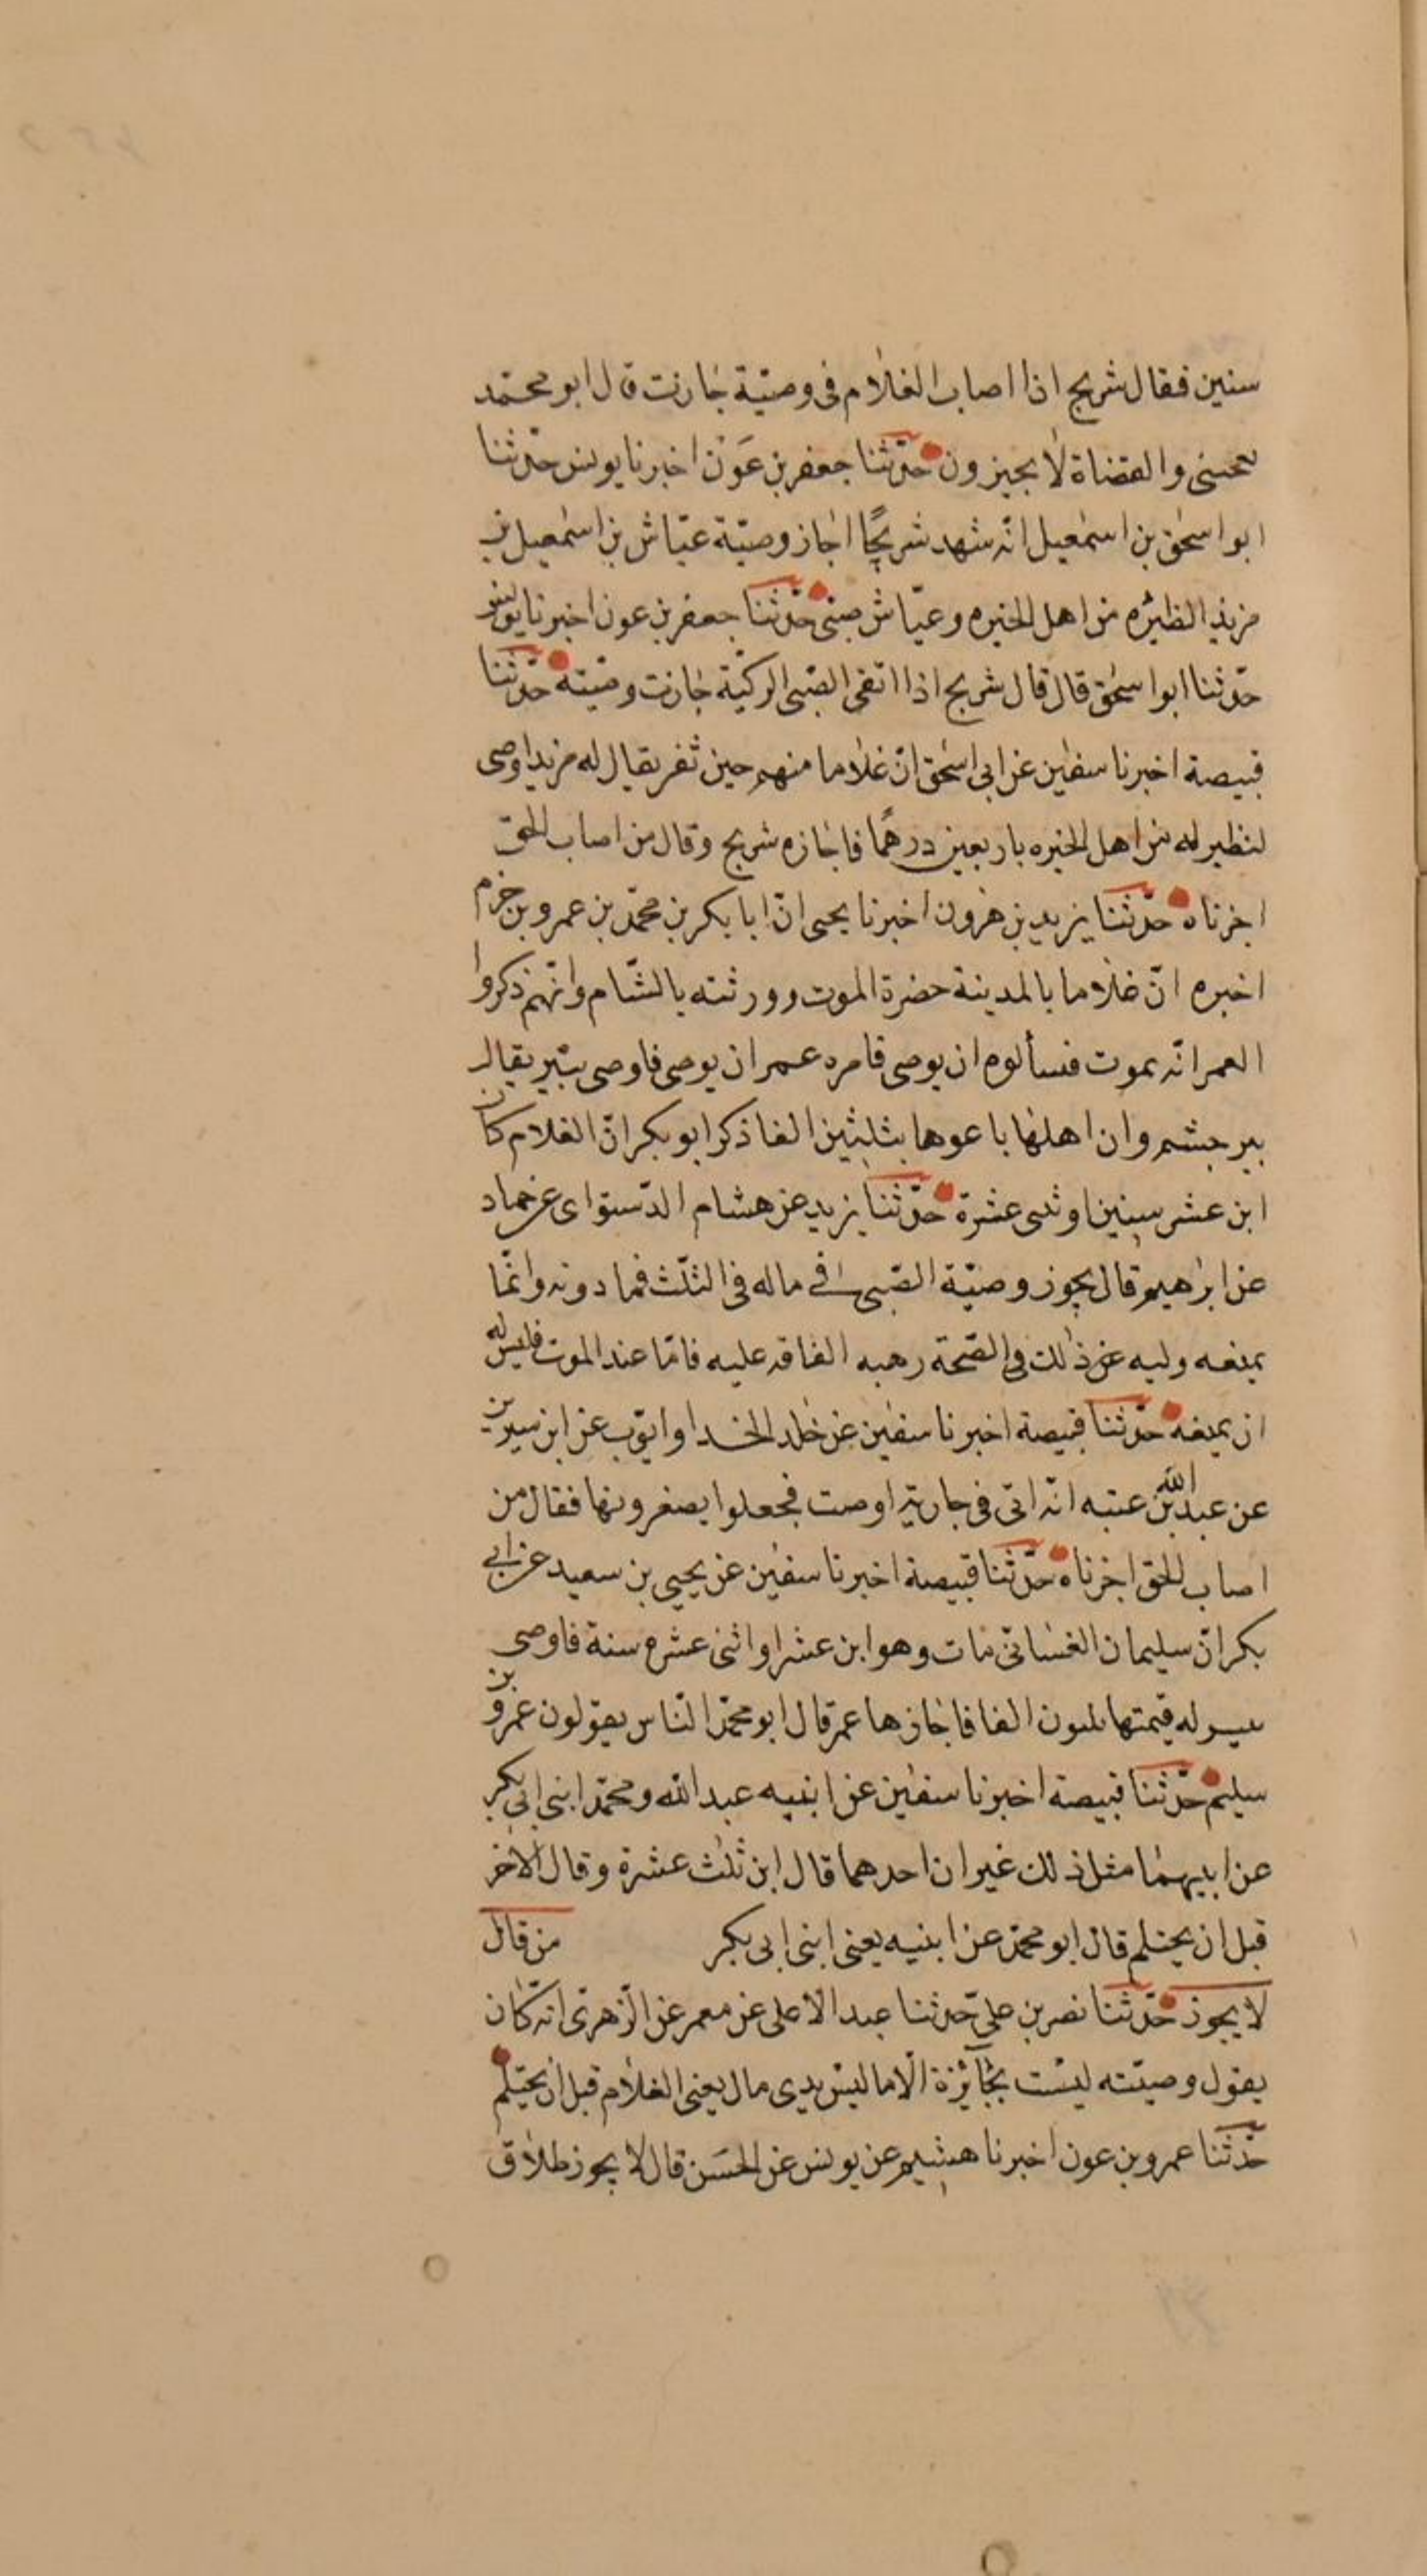 سنين فقال شريح اذا اصاب الغلام فى وصيّة جازت قال ابو محمّد
يعجبنى والقضاة لا يجيزون حدّثنا جعفر بن عَوْن اخبرنا يونس حدّثنا
ابو اسحٰق بن اسمٰعيل انّه شهد شريحًا اجاز وصيّة عيّاش بن اسمٰعيل بن
مزيد الظئره من اهل الحيره وعيّاش صبىّ حدّثنا جعفر بن عون اخبرنا يونس
حدّثنا ابو اسحٰق قال قال شريح اذا اتقى الصّبى الركيّة جازت وصّيته حدّثنا
قبيصة اخبرنا سفيٰن عن ابى اسحٰق انّ غلاما منهم حين ثغر يقال له مزيد اوصى
لظير له من اهل الحيره باربعين درهمًا فاجازه شريح وقال من اصاب الحقّ
اجزناه حدّثنا يزيد بن هٰرون اخبرنا يحيى انّ ابا بكر بن محمّد بن عمرو بن حزم
اخبره انّ غلاما بالمدينة حضرة الموت وورثته بالشّام وانّهم ذكروا
العمر انّه يموت فسألوه ان يوصى فامره عمر ان يوصى فاوصى ببير يقال
بير جشم وان اهلها باعوها بثلٰثين الفا ذكر ابو بكر انّ الغلام كان
ابن عشر سنين او ثنى عشرة حدّثنا يزيد عن هشام الدّستواى عن حماد
عن ابرٰهيم قال يجوز وصيّة الصّبى فى ماله فى الثلّث فما دونه وانّما
يمنعه وليه عن ذٰلك فى الصّحة رهبه الفاقه عليه فامّا عند الموت فليس له
ان يمنعه حدّثنا قبيصة اخبرنا سفيٰن عن خٰلد الحذا وايّوب عن ابن سيرين
عن عبد الله بن عتبه انّه اتى فى جارية اوصت فجعلوا يصغرونها فقال من
اصاب الحق اجزناه حدّثنا قبيصة اخبرنا سفيٰن عن يحيى بن سعيد عن ابى
بكر انّ سليمان الغسّانىّ مات وهو ابن عشر او اثنى عشره سنة فاوصى
ببير له قيمتها ثلثون الفا فاجازها عمر قال ابو محمّد النّاس يقولون عمرو بن
سليم حدّثنا قبيصة اخبرنا سفيٰن عن ابنيه عبد الله ومحمّد ابنى ابى بكر
عن ابيهما مثل ذٰلك غير ان احدهما قال ابن ثلٰث عشرة وقال الاخر
قبل ان يحتلم قال ابو محمّد عن ابنيه يعنى ابنى ابى بكر من قال
لا يجوز حدّثنا نصر بن علىّ حدّثنا عبد الاعلى عن معمر عن الزّهرىّ انّه كان
يقول وصيّته ليست بجائزة الّا ما ليس بدى مال يعنى الغلام قبل ان يحتلم
حدّثنا عمرو بن عون اخبرنا هشيم عن يونس عن الحَسن قال لا يجوز طلاق